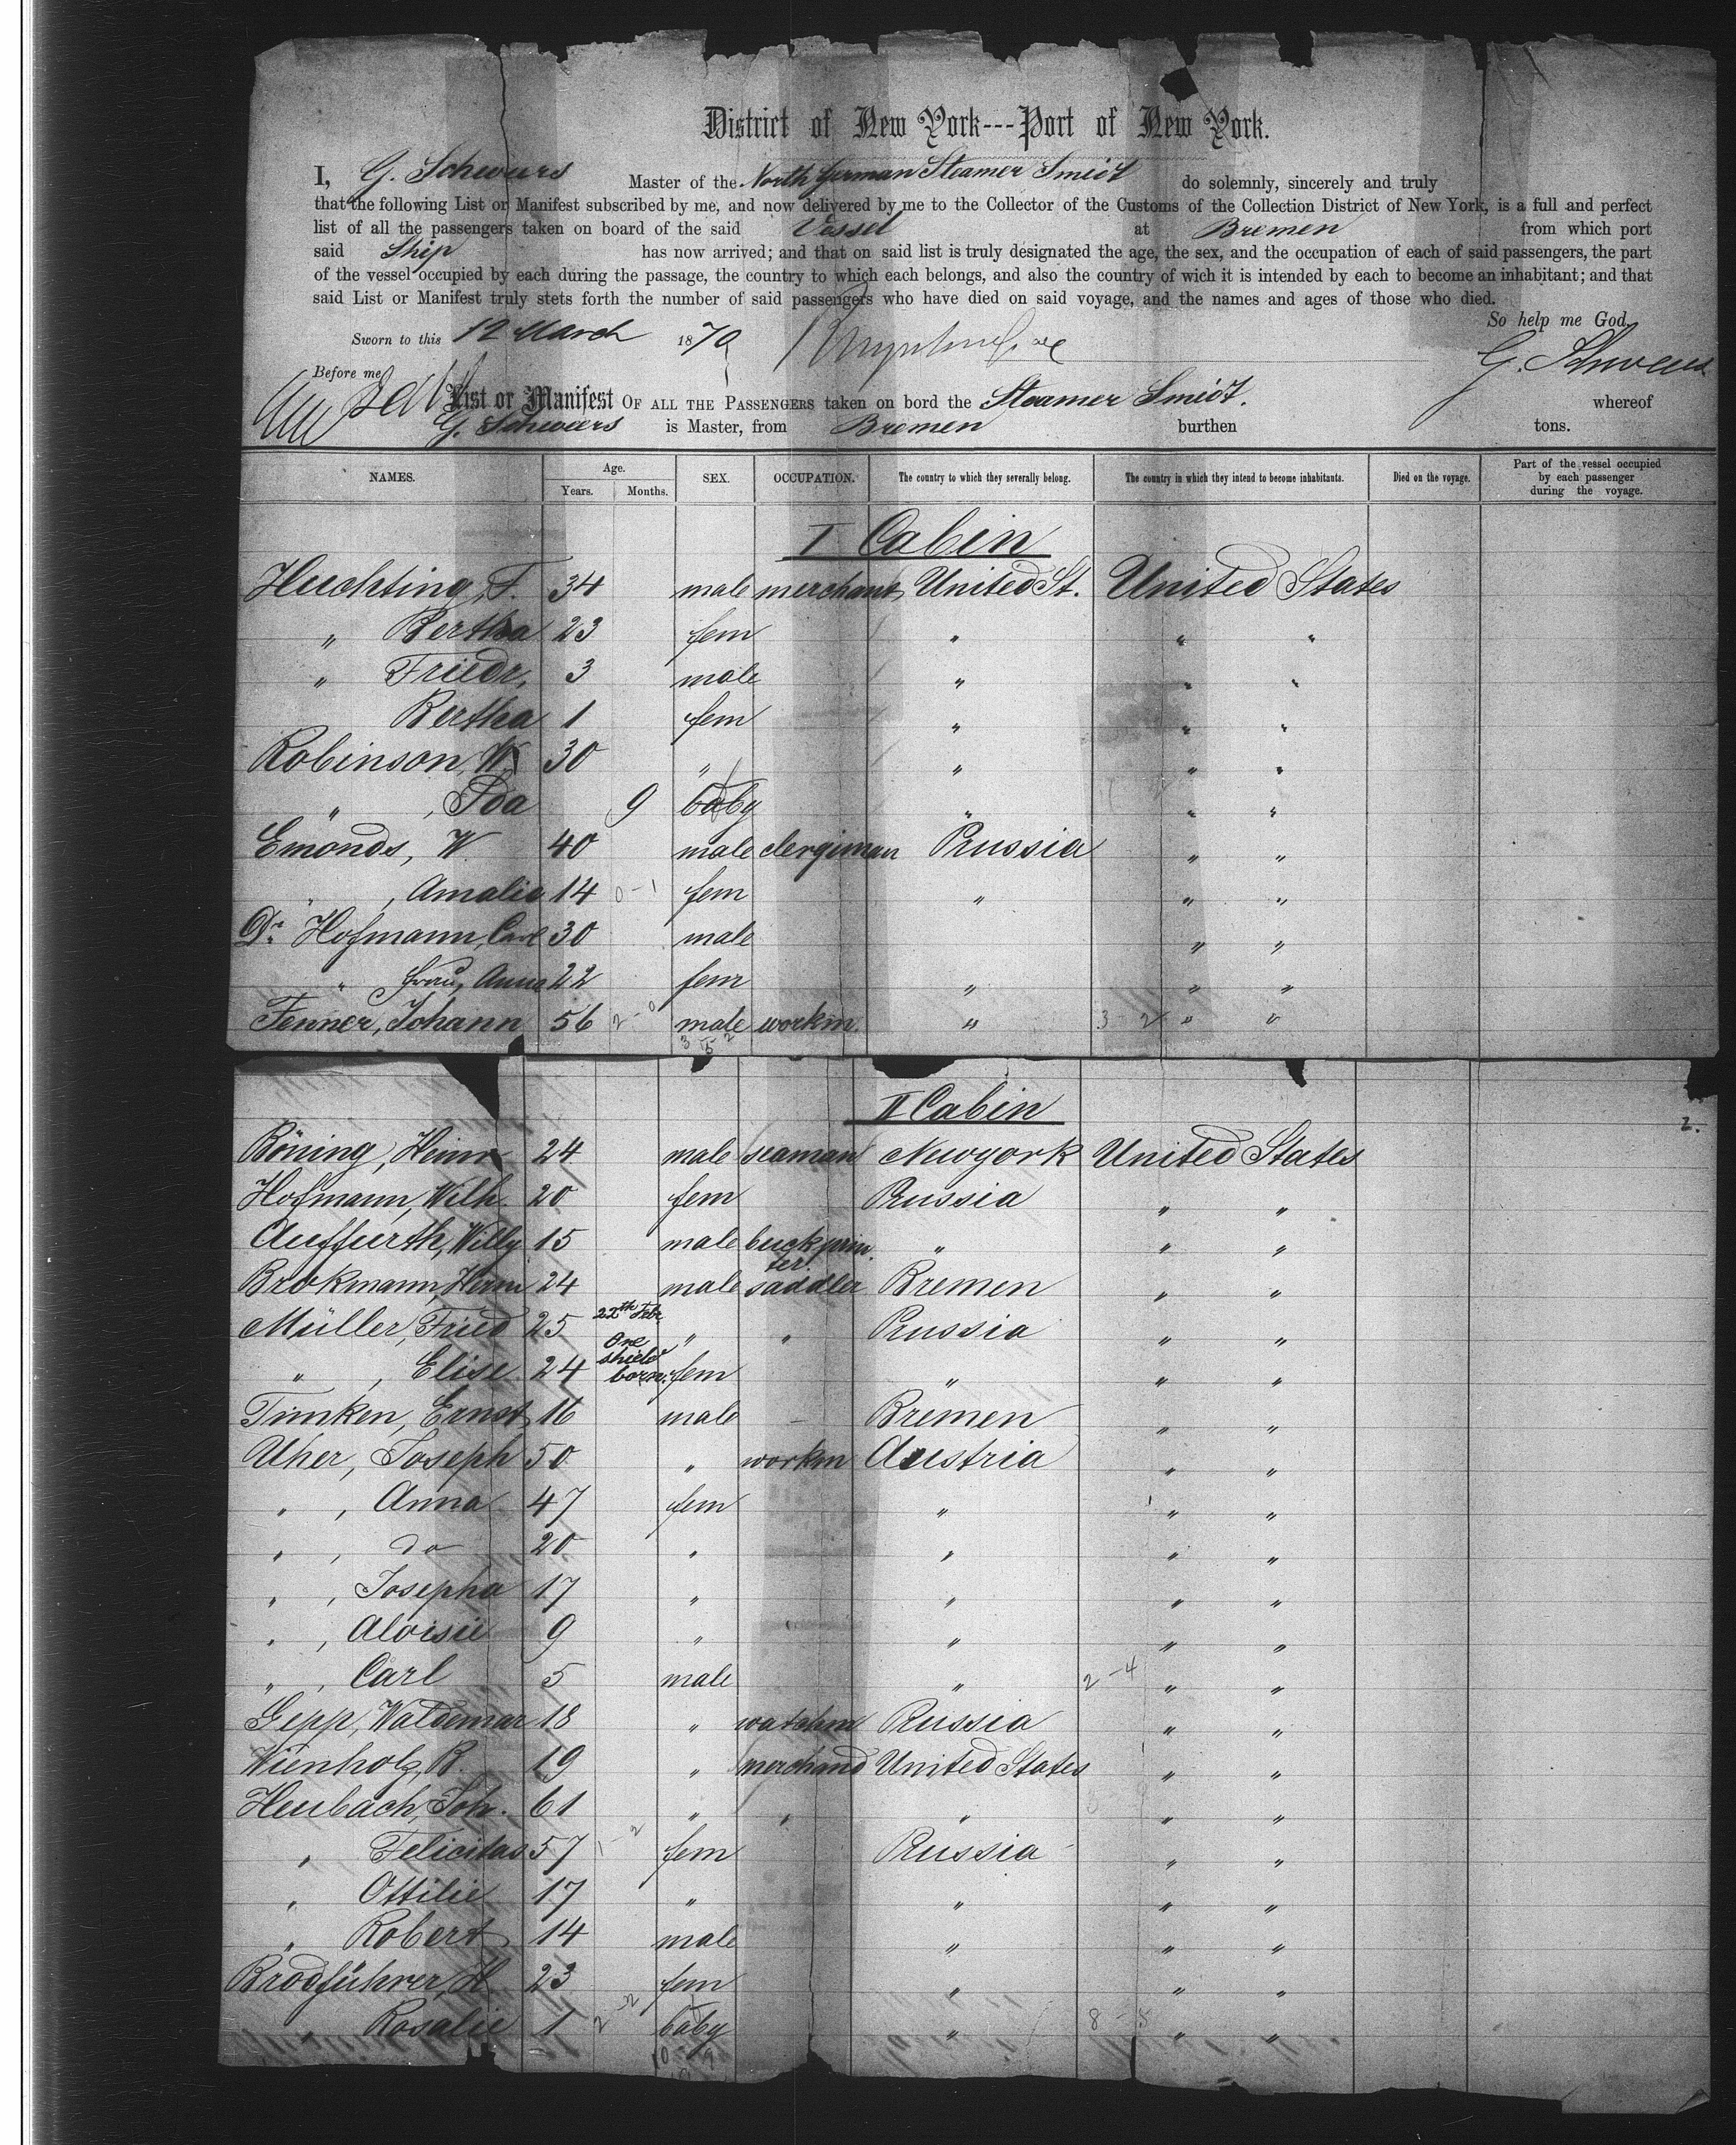 District of New York---Port of New York.
I, G. Schweers Master of the North German Steamer Smidt do solemnly, sincerely and truly
that the following List or Manifest subscribed by me, and now delivered by me to the Collector of the Customs of the Collection District of New York, is a full and perfect
list of all the passengers taken on board of the said Vessel at Bremen from which port
said Ship has now arrived; and that on said list is truly designated the age, the sex, and the occupation of each of said passengers, the part
of the vessel occupied by each during the passage, the country to which each belongs, and also the country of wich it is intended by each to become an inhabitant; and that
said List or Manifest truly stets forth the number of said passengers who have died on said voyage, and the names and ages of those who died.
So help me God.
Sworn to this 12 March 1870
G. Schweers
Before me
List or Manifest OF ALL THE PASSENGERS taken on bord the Steamer Smidt. whereof
G. Schweers is Master, from Bremen burthen tons.
NAMES. Age. Years. Months. SEX. OCCUPATION. The country to which they severally belong. The country in which they intend to become inhabitants. Died on the voyage. Part of the vessel occupied by each passenger during the voyage.
I Cabin
Huchting, F. 34 male merchant United St. United States
" Bertha 23 fem " " "
" Friedr. 3 male " " "
Bertha 1 fem " " "
Robinson, W. 30 " " " "
" , Ida 9 baby " " "
Emonds, W. 40 male clergiman Prussia " "
" , Amalie 14 0-1 fem " " "
Dr Hofmann, Carl 30 male " "
" frau, Anna 22 fem " " "
Fenner, Johann 56 2-0 male workm. " 3-2 " "
3 5 2
II Cabin
2.
Böning, Heinr 24 male seaman Newyork United States
Hofmann, Wilh. 20 fem Prussia " "
Auffurth, Willy 15 male buckprin " " "
ter.
Brokmann, Herm 24 male saddler Bremen " "
Müller, Fried 25 22th Febr " " Prussia " "
" , Elise 24 One shield born. fem " " "
Timken, Ernst 16 male - Bremen " "
Uher, Joseph 50 " workm Austria " "
" , Anna 47 fem " " "
" , do 20 " " " "
" , Josepha 17 " " " "
" , Aloisie 9 " " " "
" , Carl 5 male " 2-4 " "
Gepp, Waldemar 18 " watchm Prussia " "
Wienholz, R. 19 " merchand United States " "
Heubach, Joh. 61 " " " " "
" Felicitas 57 1-2 fem Prussia " "
" Ottilie 17 " " " "
" Robert 14 male " " "
Brodführer, H. 23 fem " " "
" Rosalie 1 2-2 baby " 8-5 " "
10-9